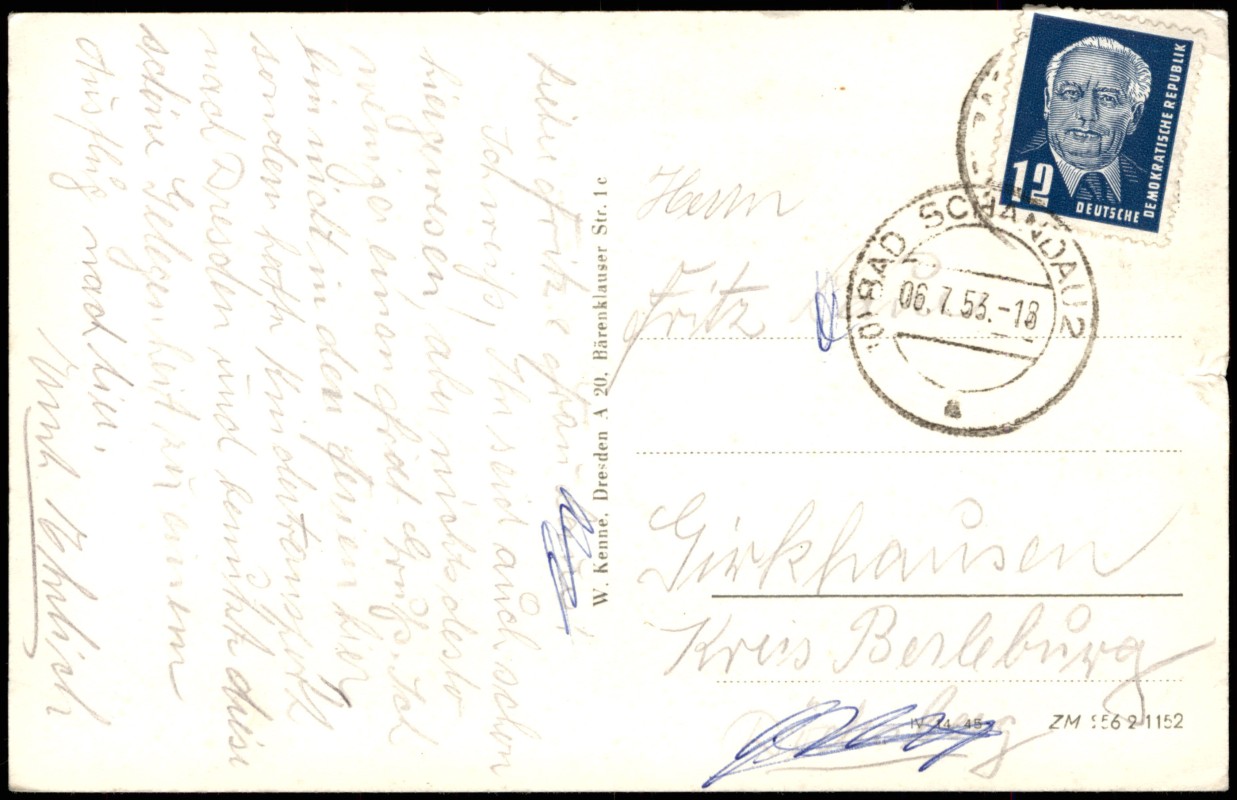 Liebe Fritz & Frau
Ich weiß, Ihr seid auch schon
hiergewesen, aber nichtsdesto
weniger einen Gruß. Ich
bin nicht in den Ferien hier
sondern hatte Kindertransport
nach Dresden und benutzte diese
schöne Gelegenheit zu einem
Ausflug nach hier.
W. Kenne, Dresden A 20, Bärenklauser Str. 1c
DEUTSCHE
DEMOKRATISCHE REPUBLIK
12
BAD SCHANDAU 2
06.7.53.-18
a
Herrn
Fritz
Girkhausen
Kreis Berleburg
ZM 556 2 1152